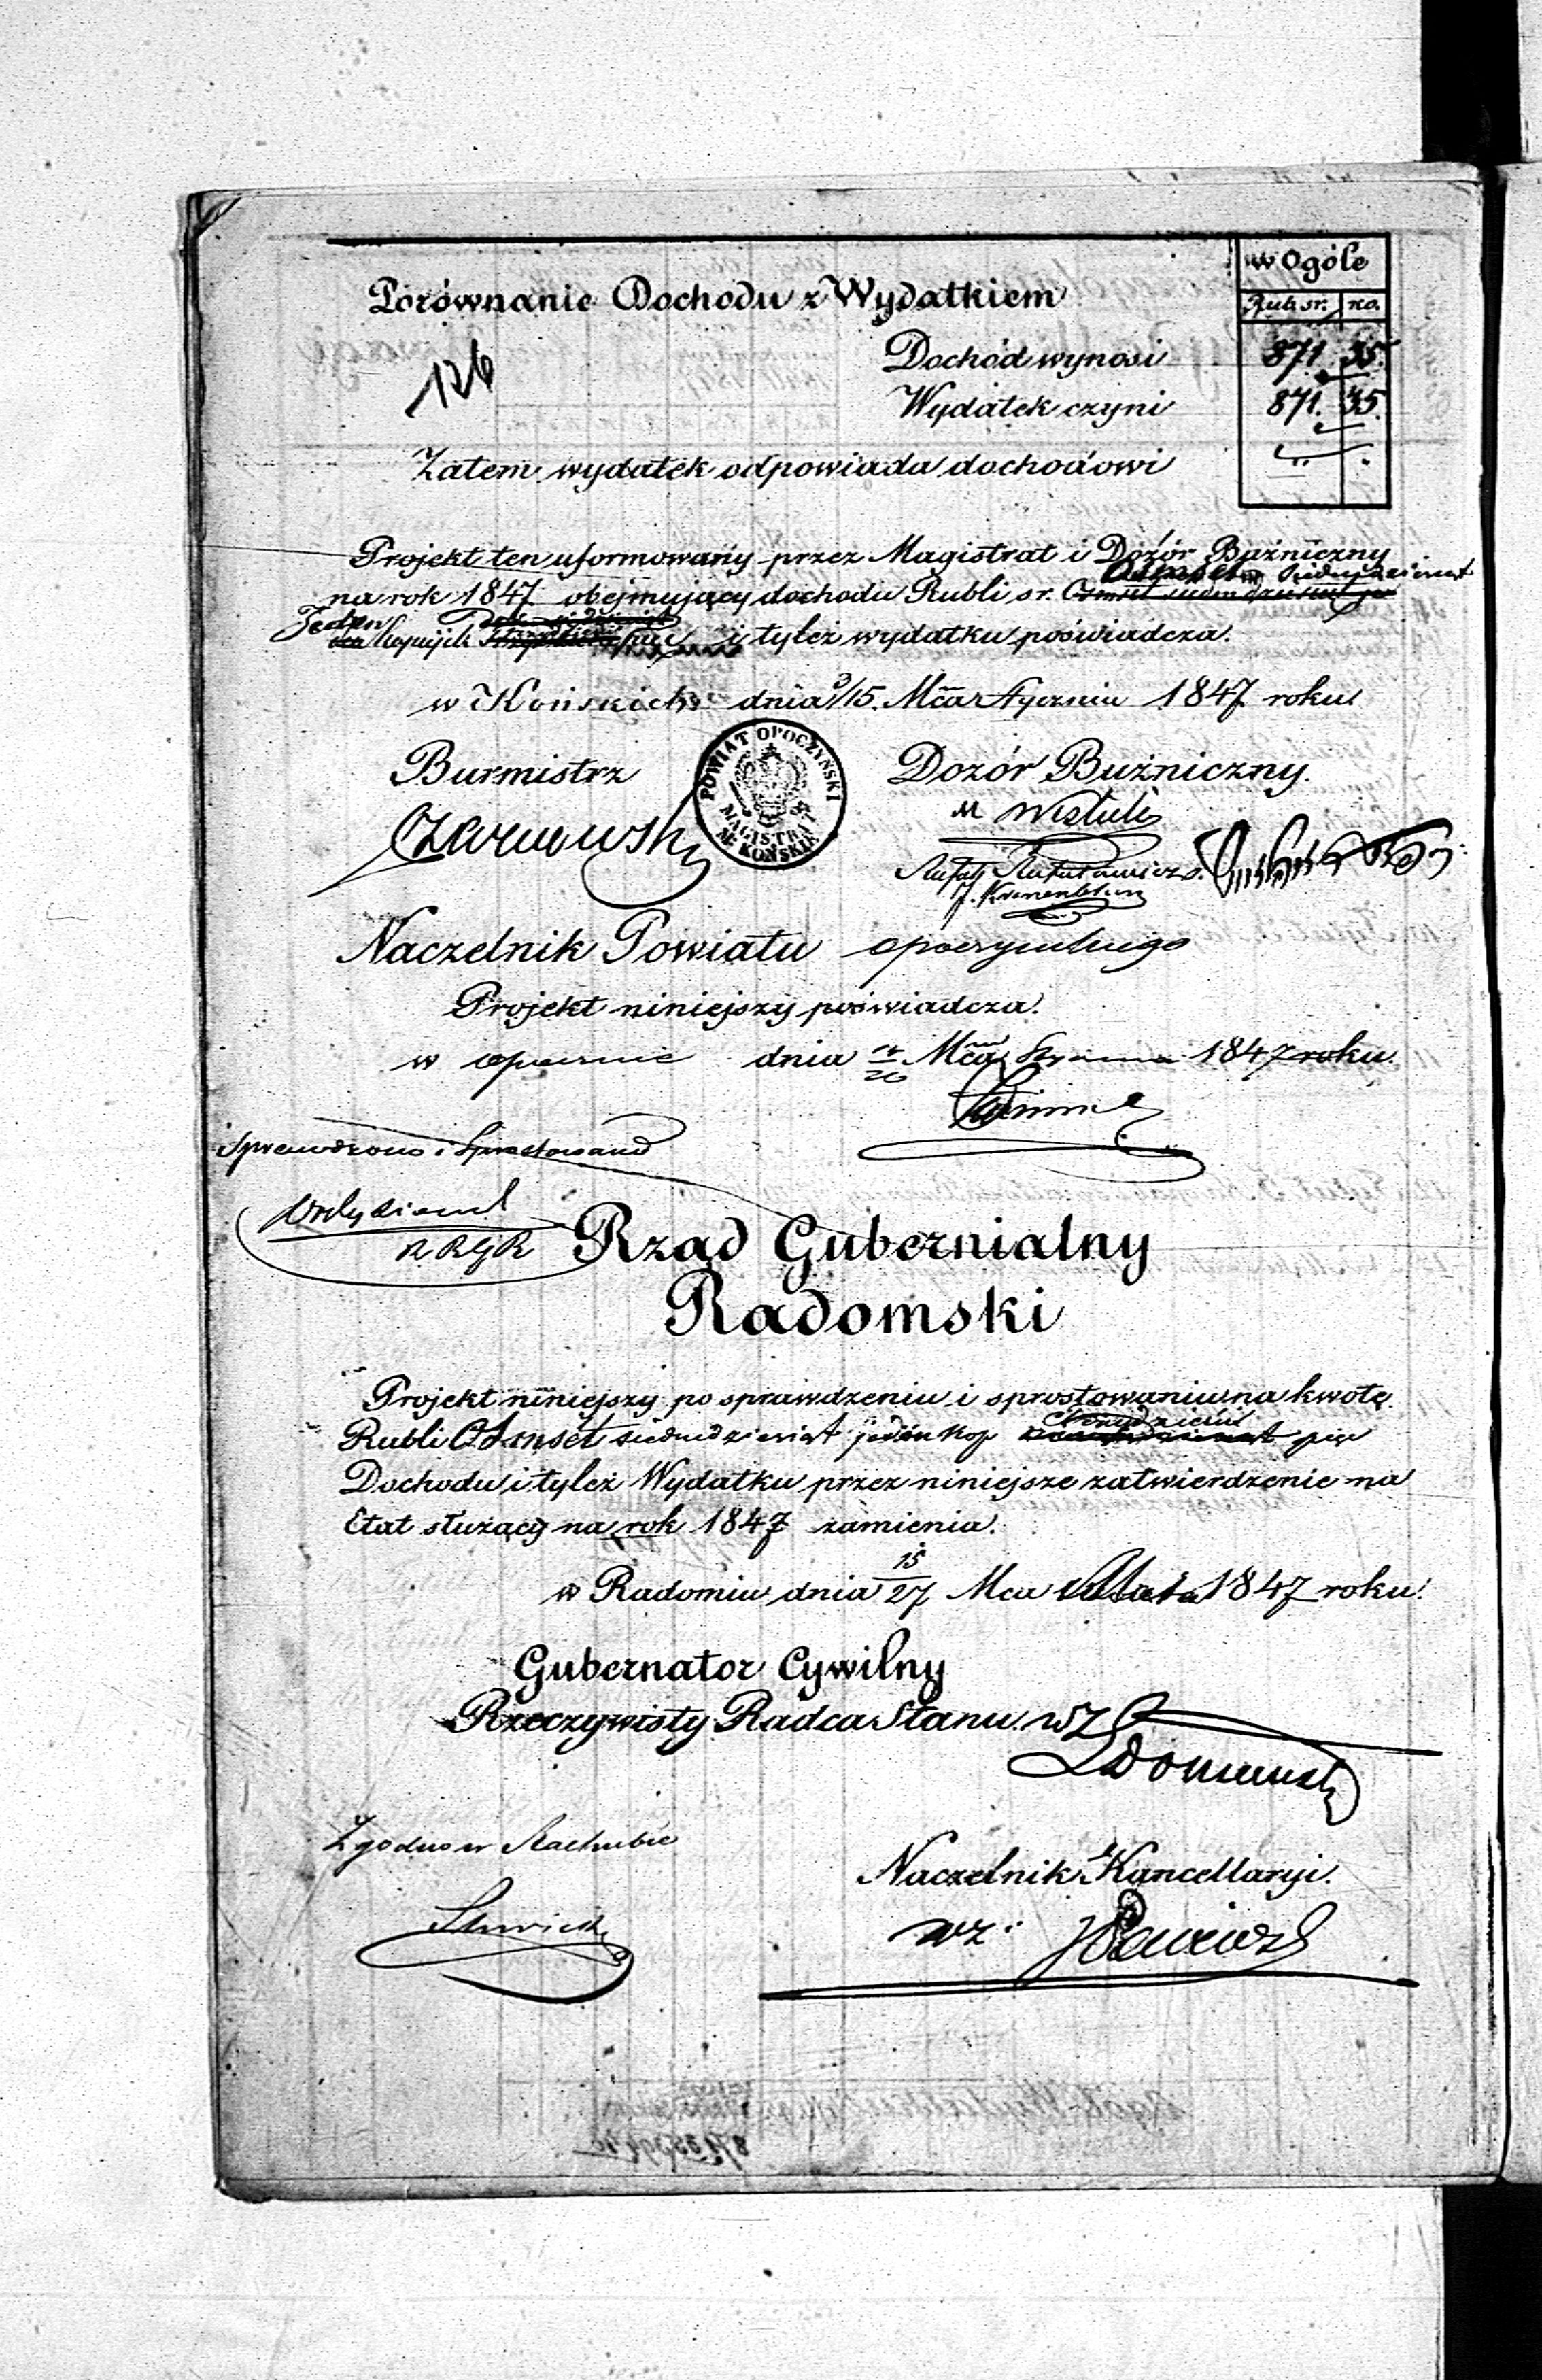 w Ogóle
Porównanie Dochodu z Wydatkiem
Rub. sr. ko.
126
Dochód wynosi 871. 35.
Wydatek czyni 871. 35.
Zatem wydatek odpowiada dochodowi
Projekt ten uformowany przez Magistrat i Dozór Buźniczny
Ośmset siedmdziesiąt
na rok 1847 obejmujący dochodu Rubli sr.
Jeden
Kopijek i tyleż wydatku poświadcza.
w Końskich dnia 3/15. Mca Stycznia 1847 roku
Burmistrz Dozór Buźniczny.
POWIAT OPOCZYŃSKI
MAGISTRAT
M. KOŃSKIE
Naczelnik Powiatu opoczyńskiego
Projekt niniejszy poświadcza.
w opocznie dnia Mca 1847 roku.
Sprawdzono i Sprostowano
R R G R
Rząd Gubernialny
Radomski
Projekt niniejszy po sprawdzeniu i sprostowaniu na kwotę
Rubli Ośmset siedmdziesiąt jeden kop pięć
Dochodu i tyleż Wydatku przez niniejsze zatwierdzenie na
Etat służący na rok 1847 zamienia.
w Radomiu dnia 15/27 Mca 1847 roku.
Gubernator Cywilny
Rzeczywisty Radca Stanu. wz
Zgodno w Rachubie
Naczelnik Kancellaryi.
wz.